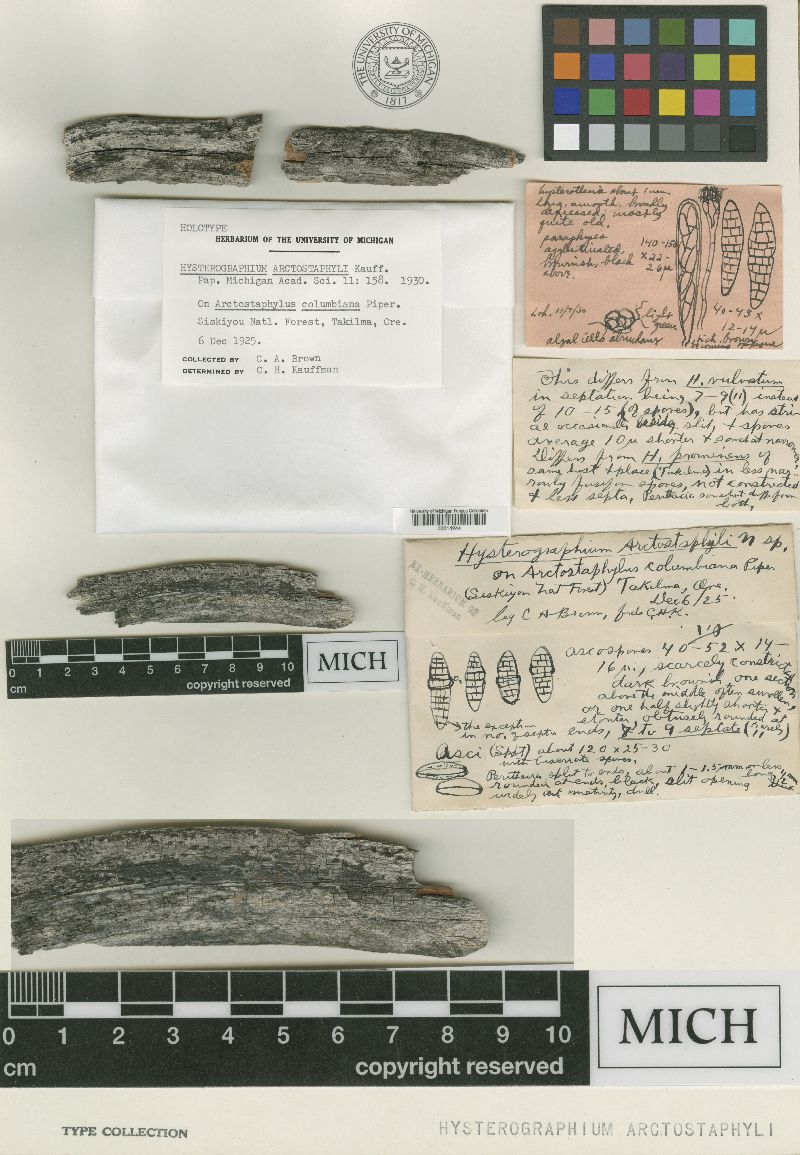 THE UNIVERSITY OF MICHIGAN
1817
HOLOTYPE
HERBARIUM OF THE UNIVERSITY OF MICHIGAN
HYSTEROGRAPHIUM ARCTOSTAPHYLI Kauff.
Pap. Michigan Acad. Sci. 11: 158. 1930.
On Arctostaphylus columbiana Piper.
Siskiyou Natl. Forest, Takilma, Ore.
6 Dec 1925.
COLLECTED BY C. A. Brown
DETERMINED BY C. H. Kauffman
University of Michigan Fungus Collection
hysterothecia about 1 mm
long, smooth, broadly
depressed, mostly
quite old.
paraphyses
agglutinated,
brownish, black
above.
140-150
x 22-
26µ
Loh. 11/7/30
light
green
algal cells abundant
40-45 x
12-17µ
rich brown
This differs from H. vulvatum
in septation being 7-9(11) instead
of 10-15 (of spores), but has
occasionally slit, & spores
average 10µ shorter & somewhat narrower.
Differs from H. prominens of
same host & place (Takilma) in less
fusiform spores, not constricted
& less septa. Perithecia somewhat diff. from
both.
Hysterographium Arctostaphyli n sp.
on Arctostaphylus columbiana Piper
(Siskiyou Nat Forest) Takilma, Ore.
Dec 6/25.
by C A Brown, fide C.H.K.
EX-HERBARIUM OF
C. H. Kauffman
ascospores 40-52 x 14-
16 µ, scarcely constricted
dark brown, one section
above the middle often swollen
or one half slightly shorter &
stouter, obtusely rounded at
ends, 7 to 9 septate (rarely 11)
the exception
in no. of septa
Asci (Spst) about 120 x 25-30
with biseriate spores.
Perithecia split to ends, about 1-1.5 mm or less long,
rounded at ends, black, slit opening
widely at maturity, dull.
0 1 2 3 4 5 6 7 8 9 10
cm
copyright reserved
MICH
0 1 2 3 4 5 6 7 8 9 10
cm
copyright reserved
MICH
TYPE COLLECTION
HYSTEROGRAPHIUM ARCTOSTAPHYLI